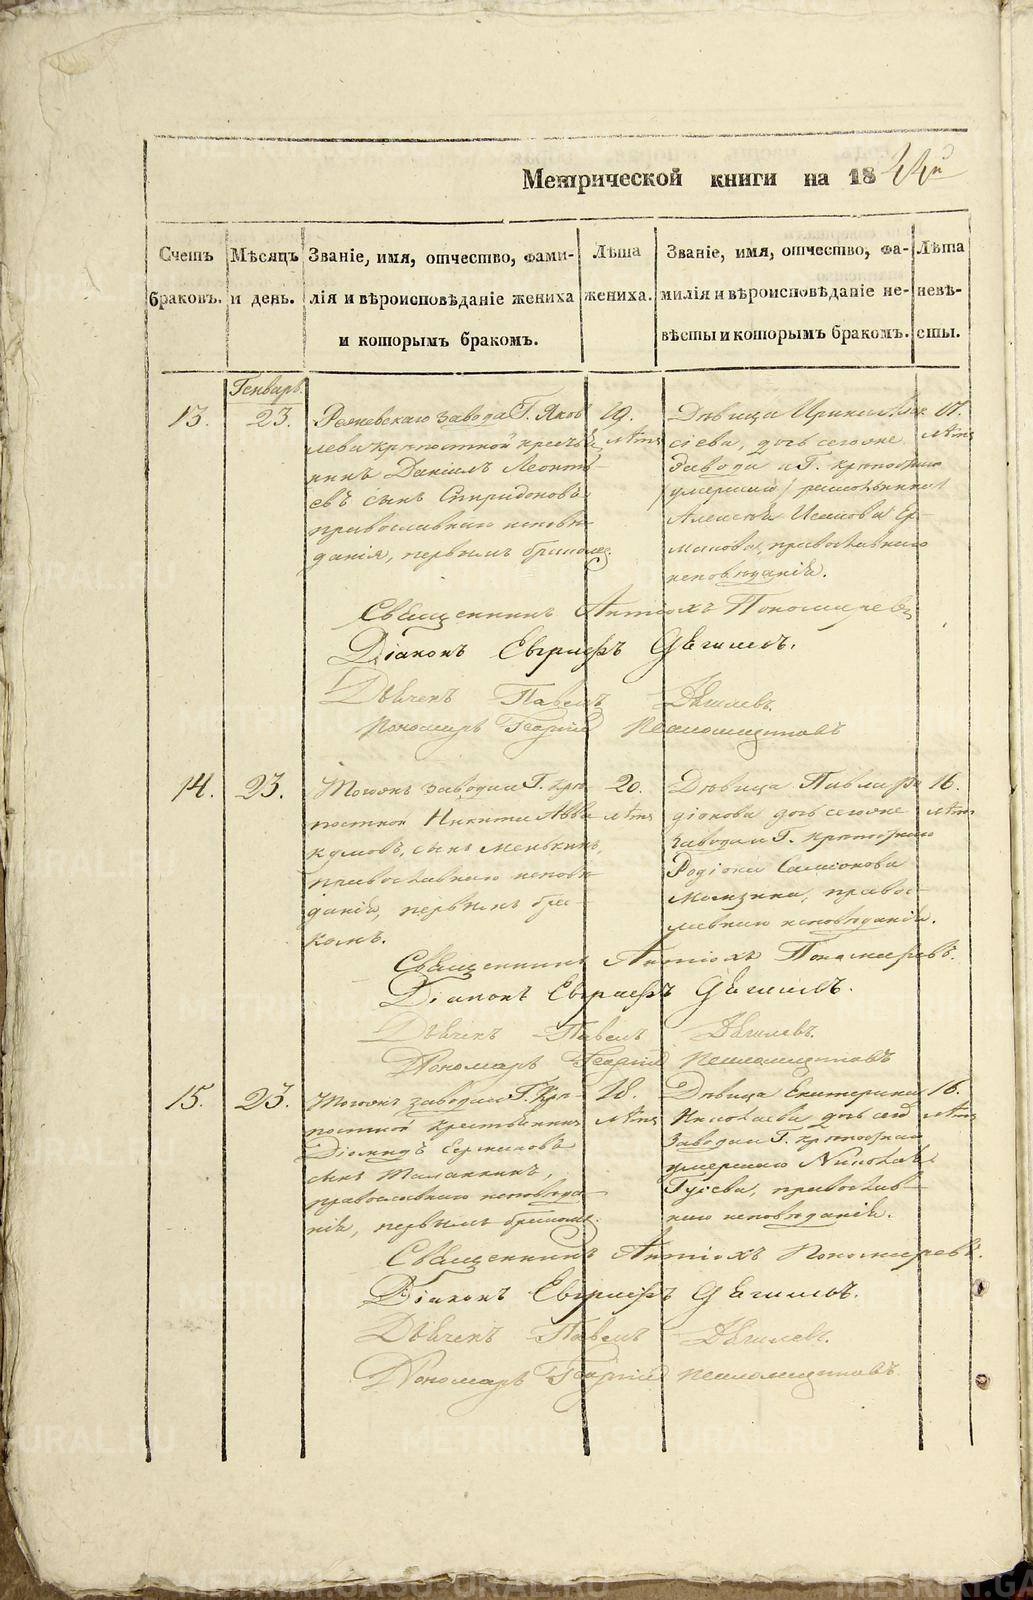 Метрической книги на 18
Счетъ браковъ.
Мѣсяцъ и день.
Званіе, имя, отчество, фами-
лія и вѣроисповѣданіе жениха
и которымъ бракомъ.
Лѣта
жениха.
Званіе, имя, отчество, фа-
милія и вѣроисповѣданіе не-
вѣсты и которымъ бракомъ.
Лѣта
невѣ-
сты.
Генварь.
13.
23.
Режевскаго завода Г. Яков
лева крѣпостной крестья
нинъ Даніилъ Леонть-
евъ сынъ Спиридоновъ
православнаго исповѣ-
данія, первымъ бракомъ.
19.
лѣтъ
Дѣвица Ирина Алек
сіева, дочь сегоже
Завода и Г. крѣпостнаго
умершаго
Алексія Исакова Ер-
макова, православнаго
исповѣданія.
17.
лѣтъ
Священникъ Антіохъ Пономаревъ
Діаконъ Евграфъ Дягилевъ.
Дьячекъ Павелъ Дягилевъ.
Пономарь Георгій
14.
23.
Тогоже завода и Г. крѣ-
постной Никита Авва
кумовъ, сынъ Менькинъ,
православнаго исповѣ-
данія, первымъ бра-
комъ.
20.
лѣтъ
Дѣвица Павла Ро
діонова дочь сегоже
завода и Г. крѣпостнаго
Родіона
православ-
наго исповѣданія.
16.
лѣтъ
Священникъ Антіохъ Пономаревъ.
Діаконъ Евграфъ Дягилевъ.
Дьячекъ Павелъ Дягилевъ.
Пономарь Георгій
15.
23.
Тогоже завода и Г. Крѣ-
постной Крестьянинъ
Діомидъ Ермиловъ
сынъ
православнаго исповѣда-
нія, первымъ бракомъ.
18.
лѣтъ
Дѣвица Екатерина
Николаева дочь сего
завода и Г. крѣпостнаго
умершаго Николая
Гусева, православ-
наго исповѣданія.
16.
лѣтъ
Священникъ Антіохъ Пономаревъ.
Діаконъ Евграфъ Дягилевъ.
Дьячекъ Павелъ Дягилевъ.
Пономарь Георгій
METRIKI.GASO-URAL.RU